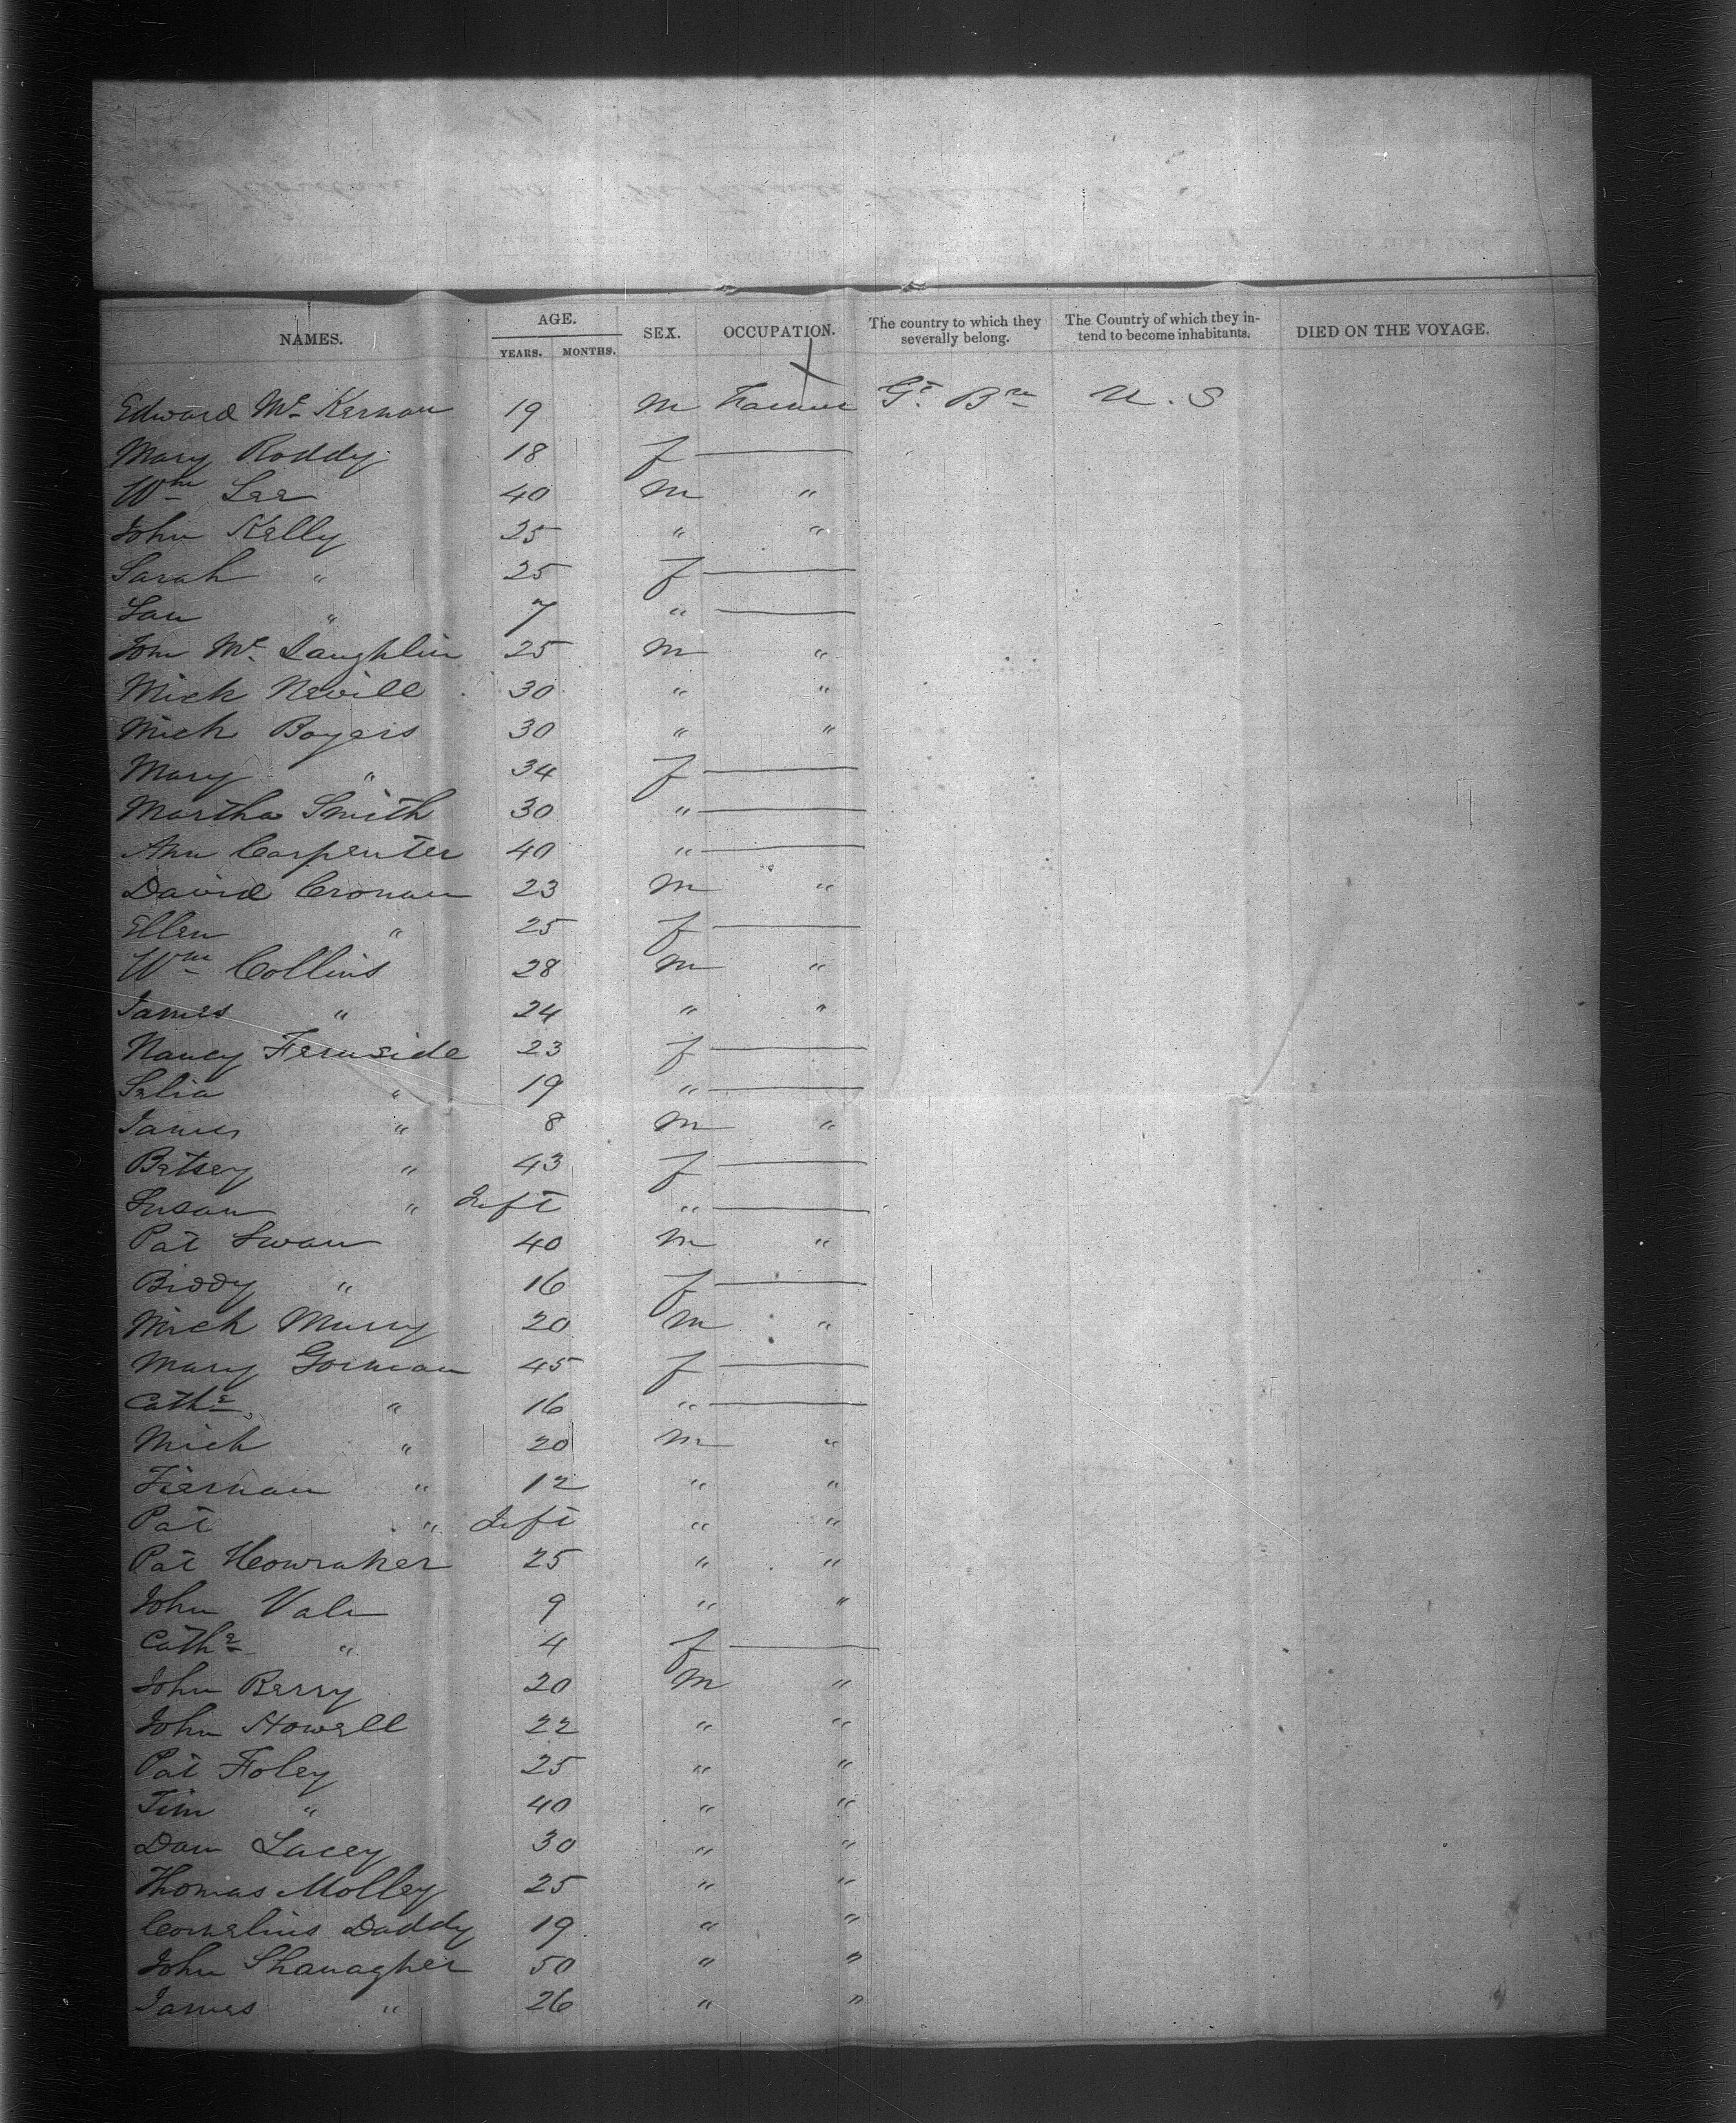 NAMES. AGE. SEX. OCCUPATION. The country to which they severally belong. The Country of which they intend to become inhabitants. DIED ON THE VOYAGE.
YEARS. MONTHS.
Edward Mc Kernan 19 m Farmer Gt. Brn U.S
Mary Roddy 18 f —
Wm Lee 40 m "
John Kelly 25 " "
Sarah " 25 f —
" 7 " —
John Mc Laughlin 25 m "
Mick Nevill 30 " "
Mich Boyers 30 " "
Mary " 34 f —
Martha Smith 30 " —
Ann Carpenter 40 " —
David Cronan 23 m "
Ellen " 25 f —
Wm Collins 28 m "
James " 24 " "
Nancy Fernside 23 f —
Selia " 19 " —
James " 8 m "
Betsey " 43 f —
Susan " Inft " —
Pat Swan 40 m "
Biddy " 16 f —
Mich Murry 20 m "
Mary Gorman 45 f —
Cathe " 16 " —
Mich " 20 m "
Tiernan " 12 " "
Pat " Inft " "
Pat 25 " "
John Vale 9 " "
Cathe " 4 f —
John Berry 20 m "
John Howell 22 " "
Pat Foley 25 " "
Tim " 40 " "
Dan Lacey 30 " "
Thomas Molley 25 " "
Cornelius Daddy 19 " "
John Shanagher 50 " "
James " 26 " "